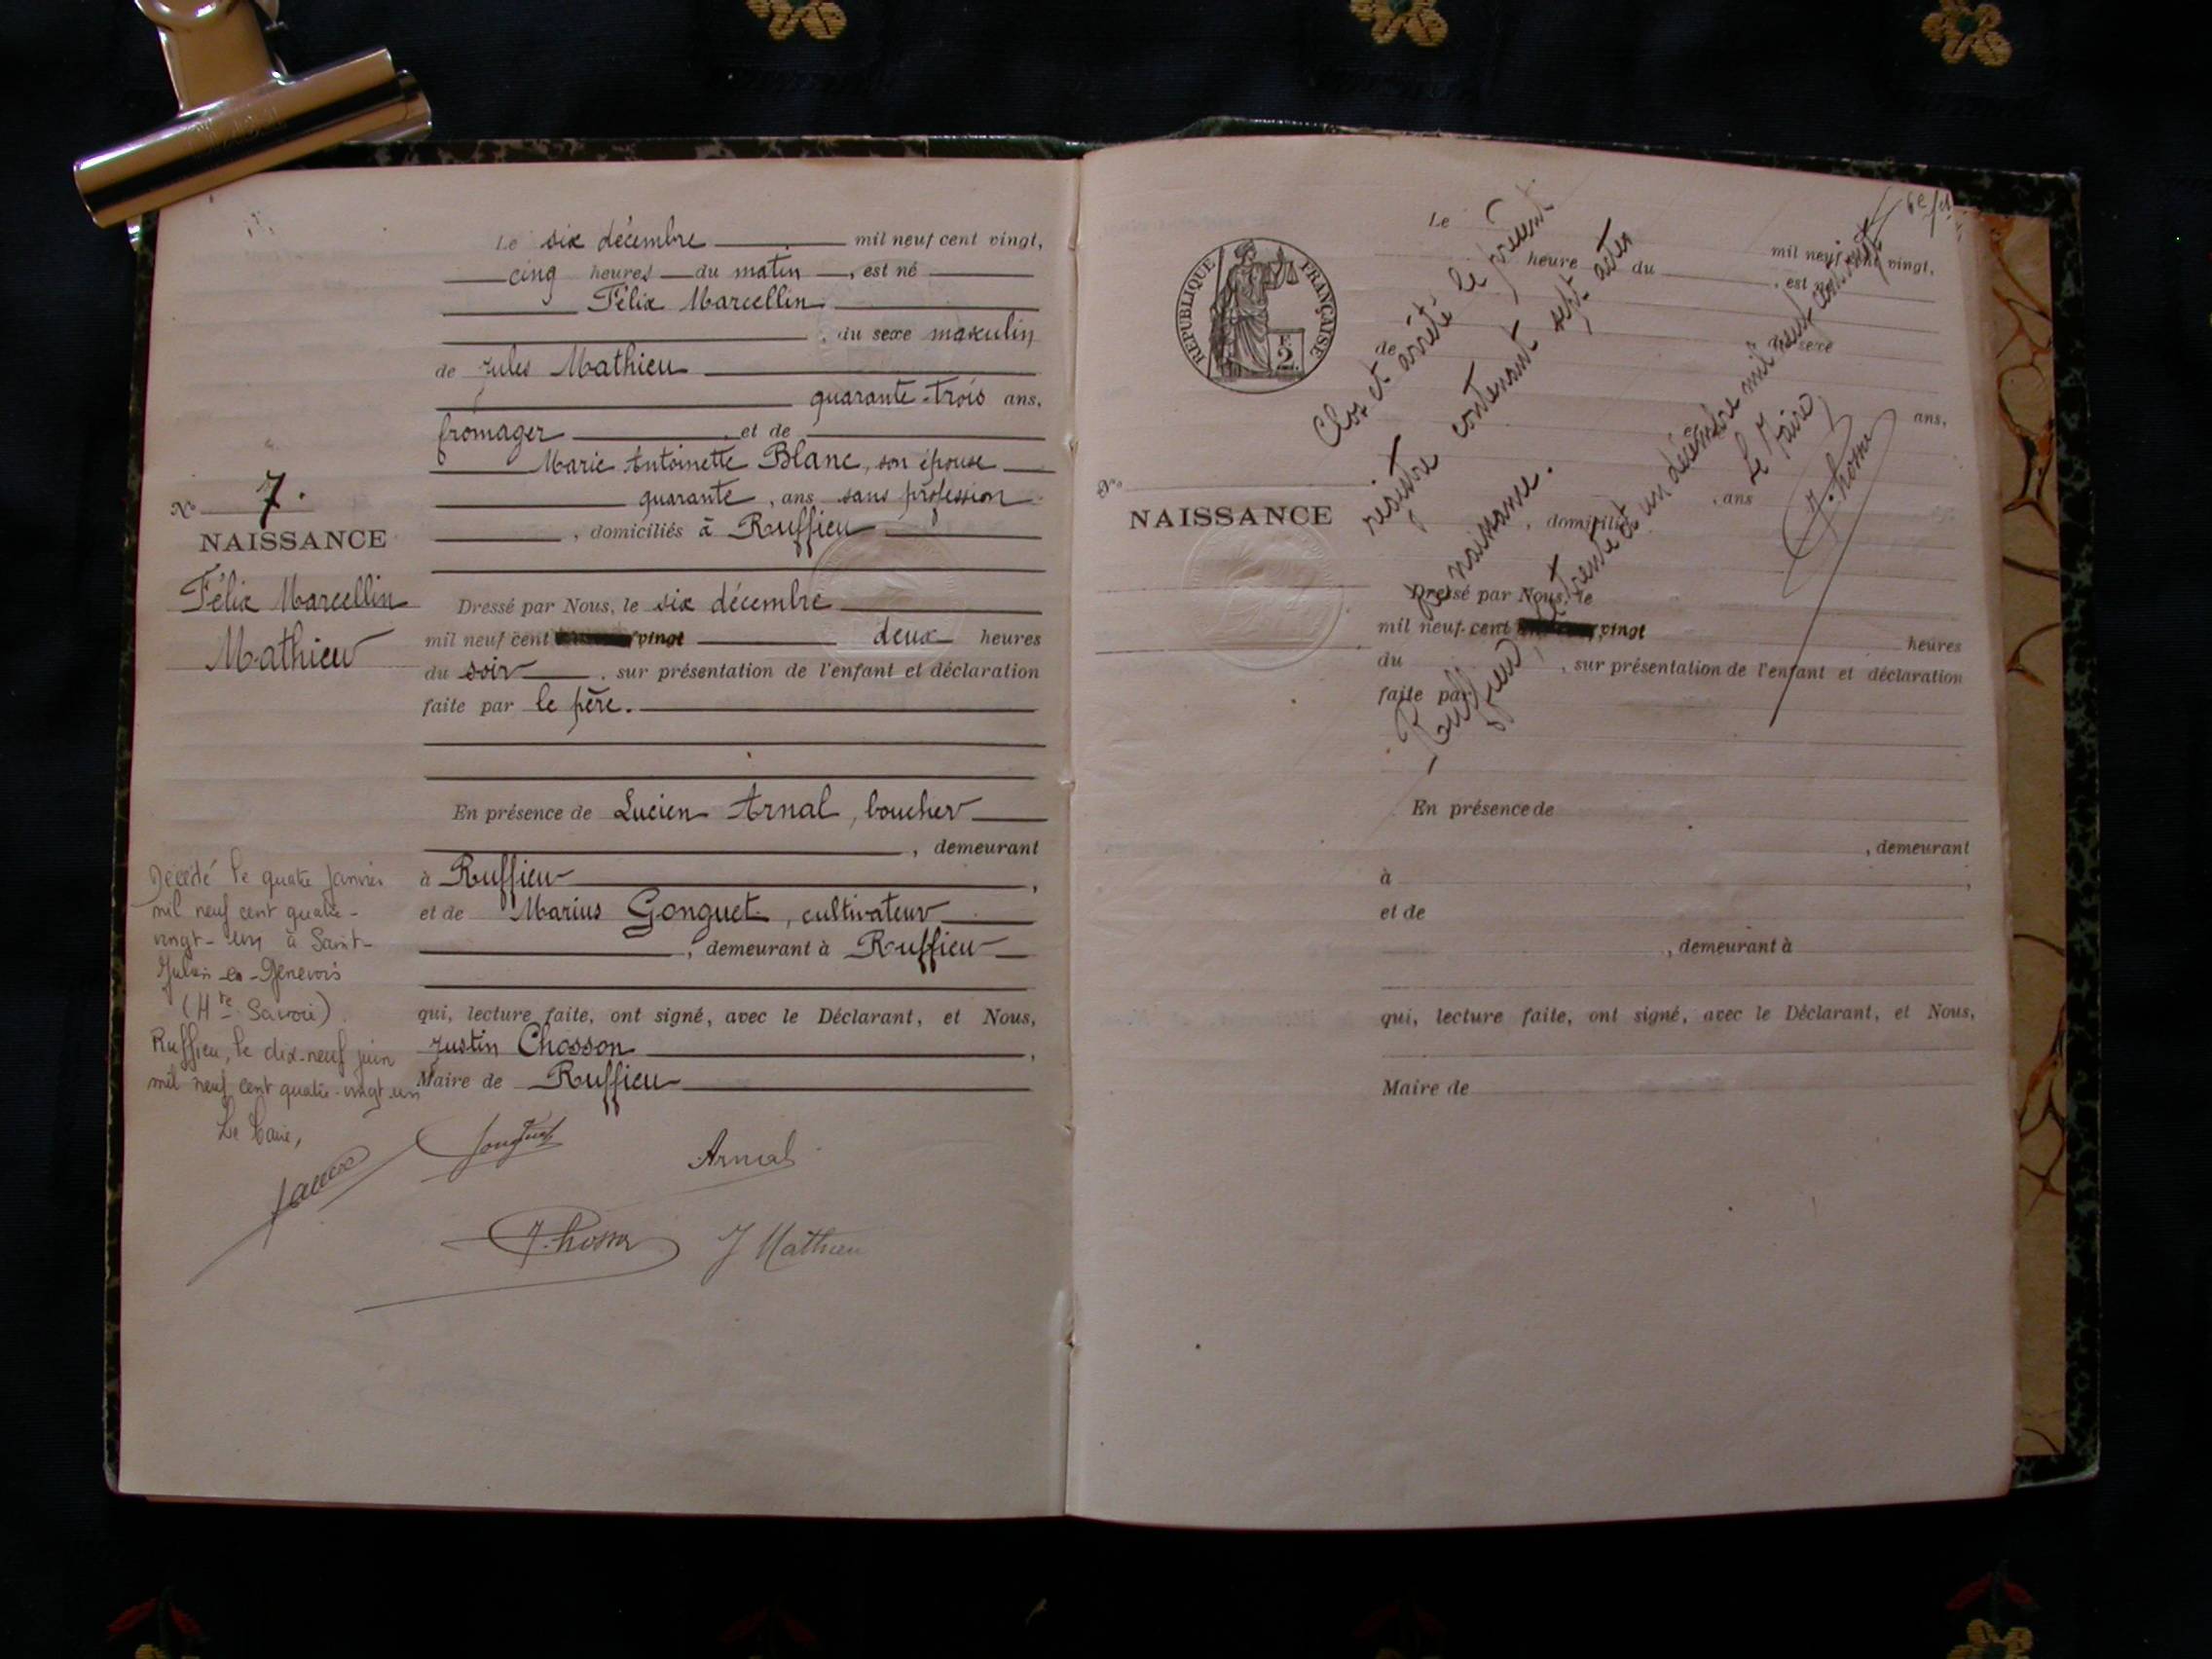 Le six décembre mil neuf cent vingt,
cinq heures du matin, est né
Félix Marcellin
, du sexe masculin
de Jules Mathieu
quarante-trois ans,
fromager, et de
Marie Antoinette Blanc, son épouse
quarante, ans sans profession
, domiciliés à Ruffieu
No 7.
NAISSANCE
Félix Marcellin
Mathieu
Dressé par Nous, le six décembre
mil neuf cent vingt deux heures
du soir, sur présentation de l'enfant et déclaration
faite par le père.
En présence de Lucien Arnal, boucher
, demeurant
à Ruffieu,
et de Marius Gonguet, cultivateur
, demeurant à Ruffieu
qui, lecture faite, ont signé, avec le Déclarant, et Nous,
Justin Chosson,
Maire de Ruffieu
Décédé le quatre janvier
mil neuf cent quatre-
vingt-un à Saint-
Julien-en-Genevois
(Hte Savoie).
Ruffieu, le dix-neuf juin
mil neuf cent quatre-vingt un
Le Maire,
Gonguet
Arnal
J. Chosson
J Mathieu
REPUBLIQUE FRANÇAISE
2
Le mil neuf cent vingt,
heure du , est né
de
du sexe
ans,
et de
, ans
, domicilié
No
NAISSANCE
Dressé par Nous, le
mil neuf cent vingt heures
du , sur présentation de l'enfant et déclaration
faite par
En présence de
, demeurant
à ,
et de
, demeurant à
qui, lecture faite, ont signé, avec le Déclarant, et Nous,
Maire de
Clos et arrêté le présent
registre contenant sept actes
de naissance.
Ruffieu, le trente et un décembre mil neuf cent vingt
Le Maire,
J. Chosson